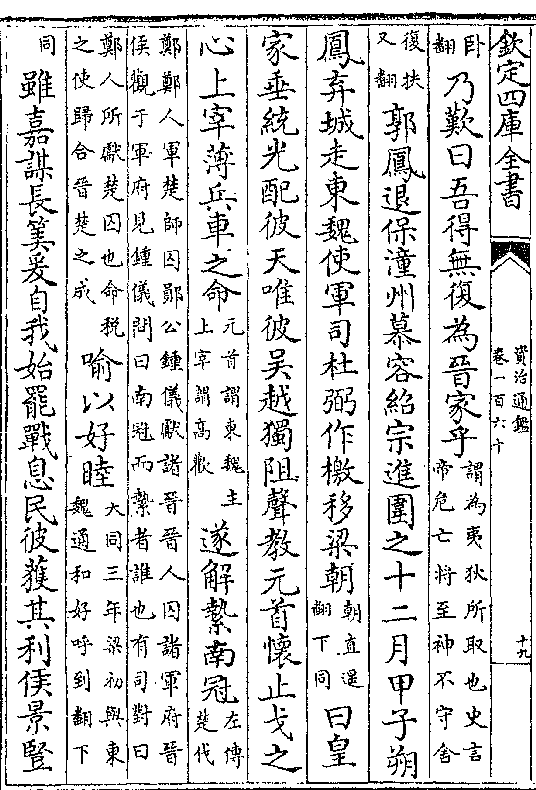 欽定四庫全書
資治通鑑
卷一百六十
十九
卧
翻
乃歎曰吾得無復為晉家乎
謂為夷狄所取也史言
帝危亡将至神不守舍
復扶
又翻
郭鳳退保潼州慕容紹宗進圍之十二月甲子朔
鳳弃城走東魏使軍司杜弼作檄移梁朝
朝直遥
翻下同
曰皇
家垂統光配彼天唯彼吳越獨阻聲教元首懷止戈之
心上宰薄兵車之命
元首謂東魏主
上宰謂高歡
遂解縶南冠
左傳
楚伐
鄭鄭人軍楚師囚鄖公鍾儀獻諸晉晉人囚諸軍府晉
侯觀于軍府見鍾儀問曰南冠而縶者誰也有司對曰
鄭人所獻楚囚也命税
之使歸合晉楚之成
喻以好睦
大同三年梁初與東
魏通和好呼到翻下
同
雖嘉謀長筭爰自我始罷戰息民彼獲其利侯景豎